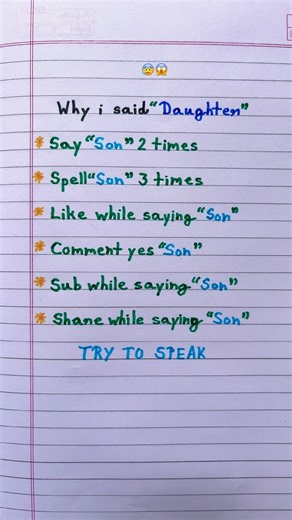 😰😱
Why i said "Daughter"
* Say "Son" 2 times
* Spell "Son" 3 times
* Like while saying "Son"
* Comment yes "Son"
* Sub while saying "Son"
* Share while saying "Son"
TRY TO SPEAK